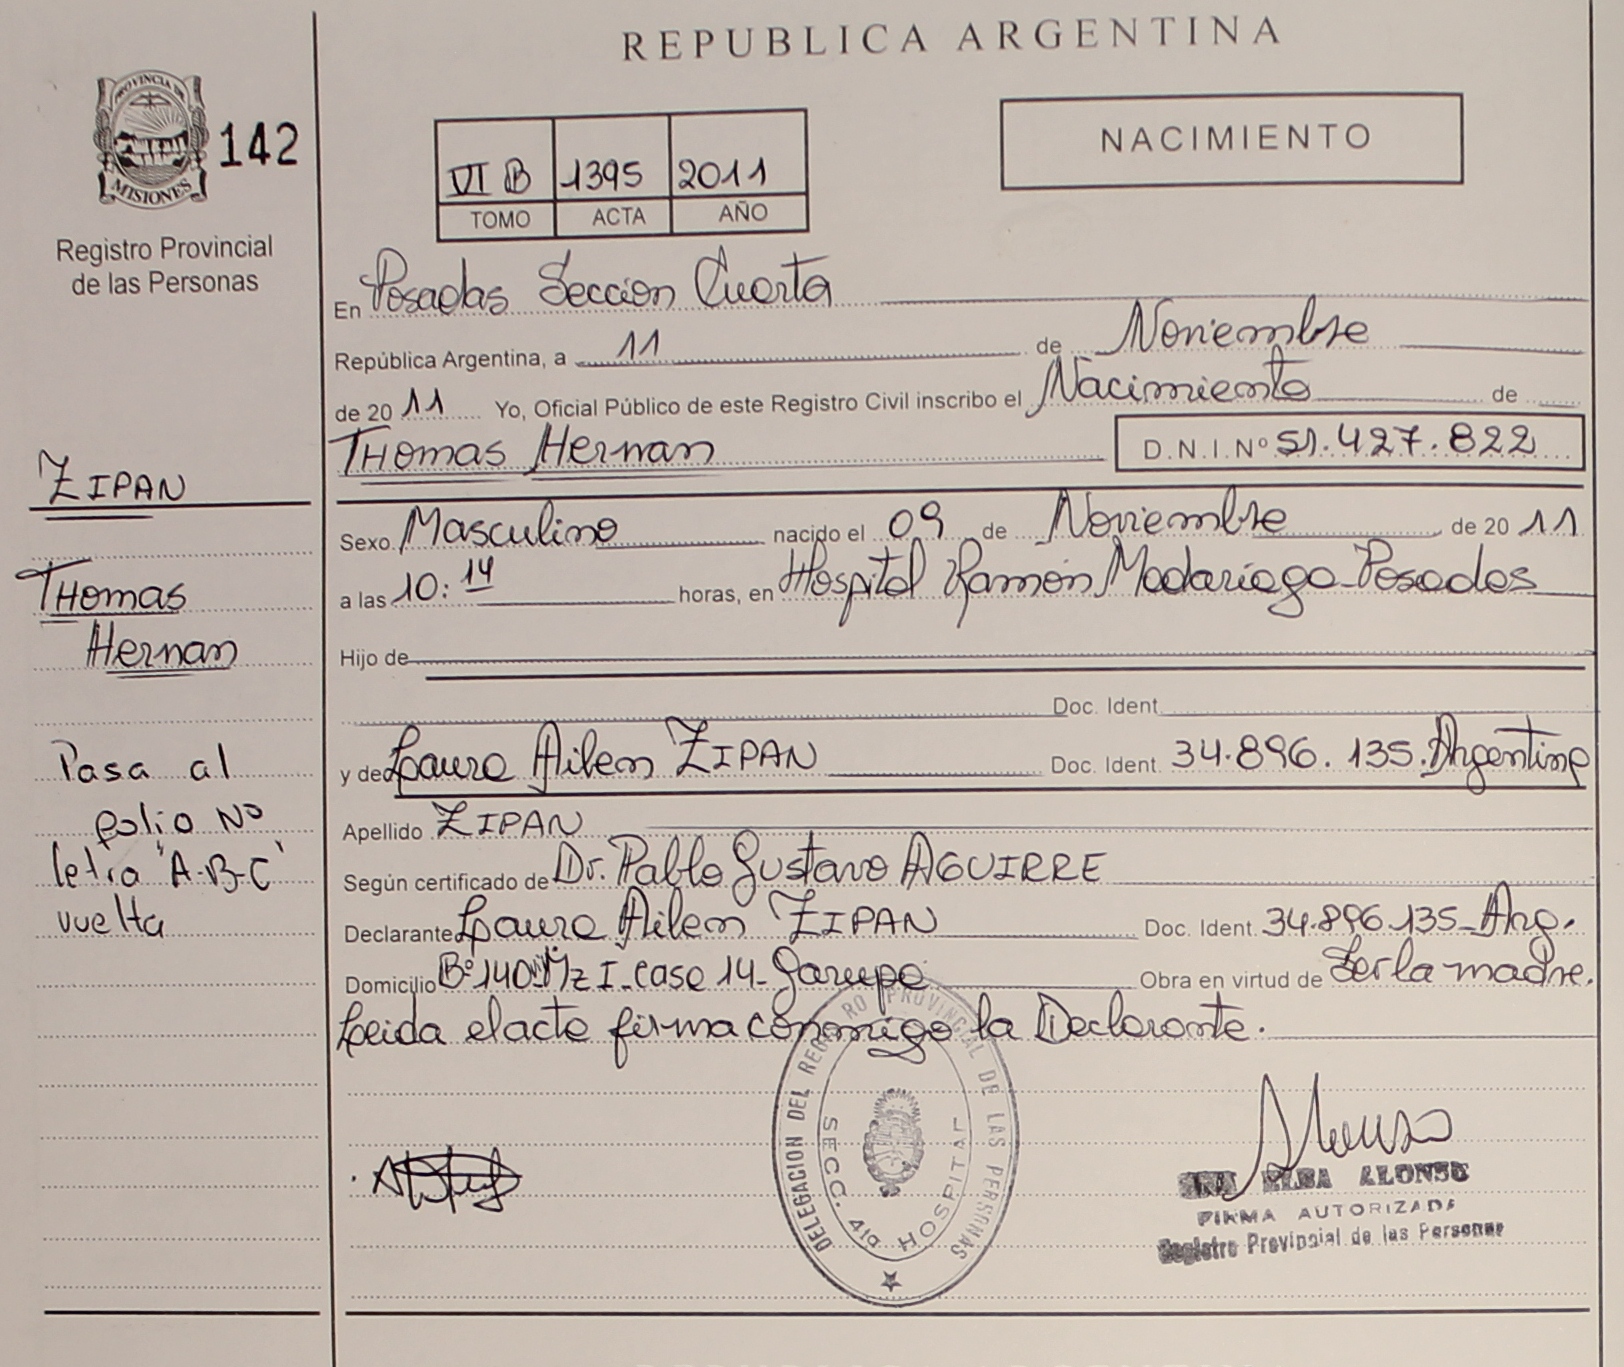 REPUBLICA ARGENTINA
PROVINCIA DE
MISIONES
142
Registro Provincial
de las Personas
VI B 1395 2011
TOMO ACTA AÑO
NACIMIENTO
En Posadas Sección Cuarta
República Argentina, a 11 de Noviembre
de 2011 Yo, Oficial Público de este Registro Civil inscribo el Nacimiento de
THomas Hernan D.N.I.Nº 51.427.822
ZIPAN
THomas
Hernan
Sexo Masculino nacido el 09 de Noviembre de 2011
a las 10:14 horas, en Hospital Ramón Madariaga-Posadas
Hijo de
Doc. Ident.
y de Laura Ailem ZIPAN Doc. Ident. 34.896.135. Argentina
Apellido ZIPAN
Según certificado de Dr. Pablo Gustavo AGUIRRE
Declarante Laura Ailem ZIPAN Doc. Ident. 34.896.135-Arg.
Domicilio Bº 140 Mz I-casa 14-Garupa Obra en virtud de Ser la madre.
Leida el acta firma conmigo la Declarante.
Pasa al
folio Nº
letra "A-B-C"
vuelta
DELEGACION DEL REGISTRO PROVINCIAL DE LAS PERSONAS
SECC. 4ta HOSPITAL
ELBA ALONSO
FIRMA AUTORIZADA
Registro Provincial de las Personas